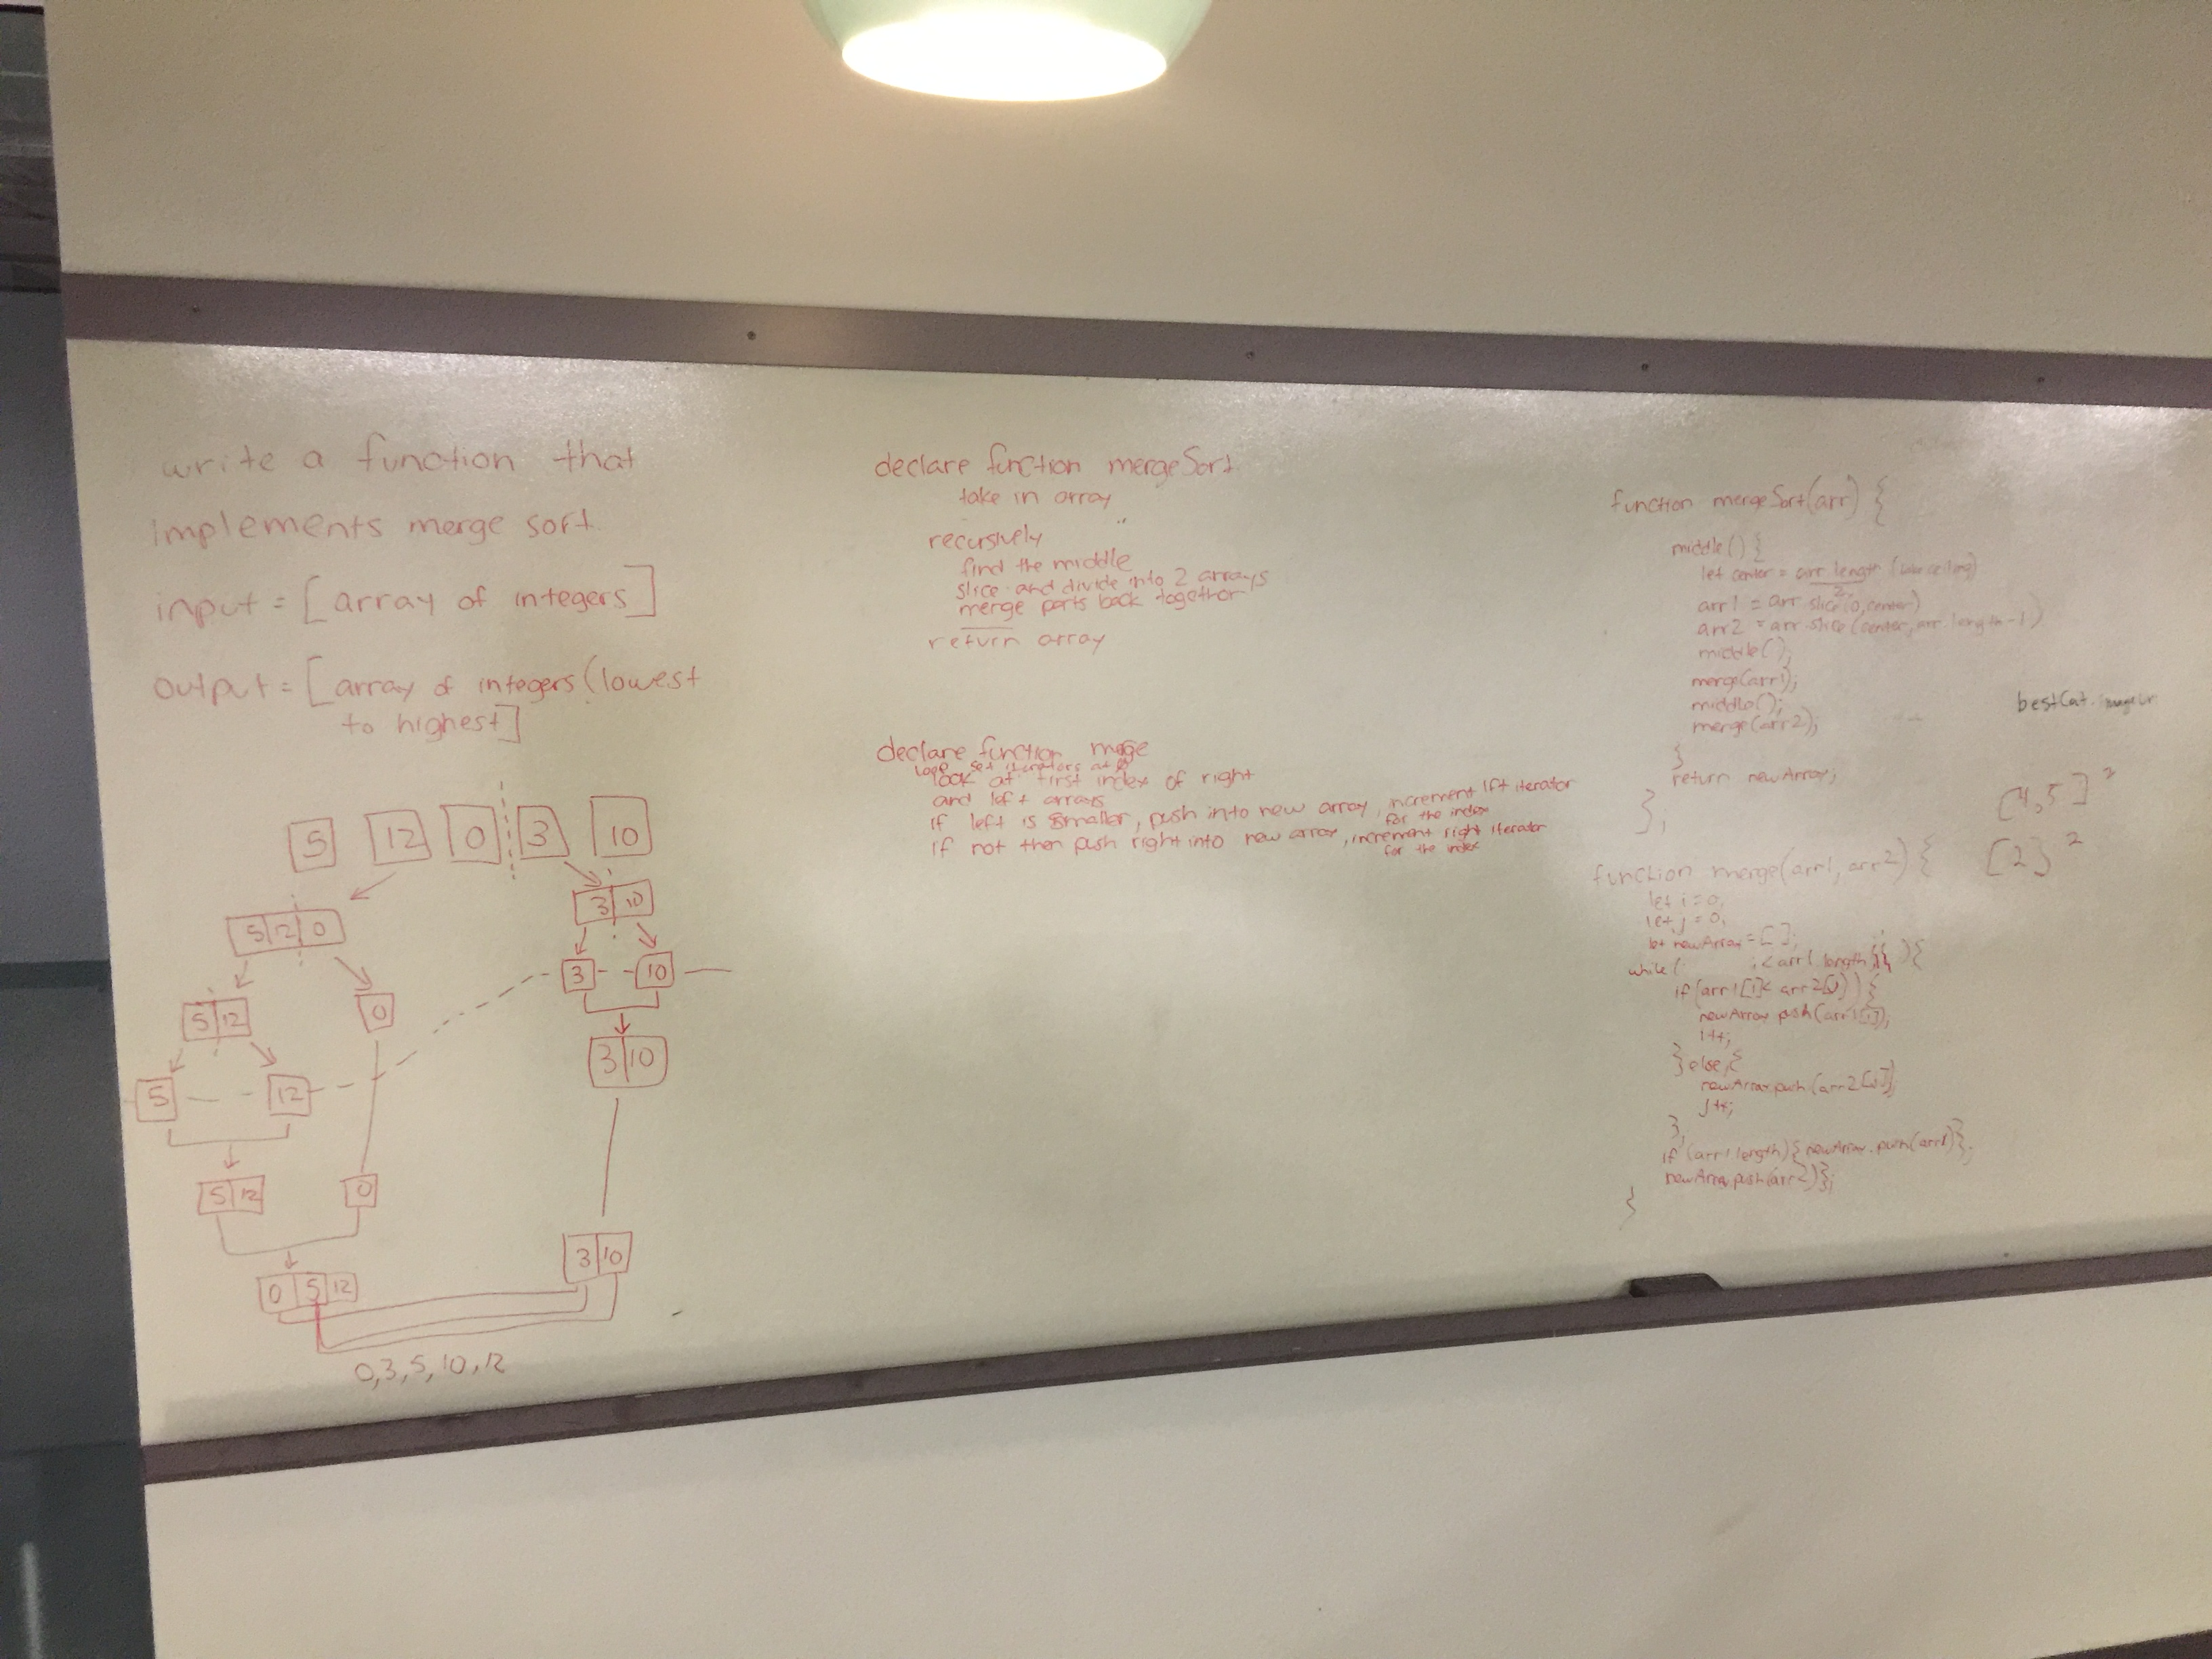 write a function that
implements merge sort.
input = [array of integers]
output = [array of integers (lowest
to highest]
5 12 0 3 10
5 12 0
3 10
5 12
0
3
10
5
12
3 10
5 12
0
3 10
0 5 12
0,3,5,10,12
declare function mergeSort
take in array
recursively
find the middle
slice and divide into 2 arrays
merge parts back together
return array
declare function merge
loop set iterators at 0
look at first index of right
and left arrays
if left is smaller, push into new array, increment lft iterator
for the index
if not then push right into new array, increment right iterator
for the index
function mergeSort(arr) {
middle() {
let center = arr.length
2
arr1 = arr.slice(0, center)
arr2 = arr.slice(center, arr.length-1)
middle();
merge(arr1);
middle();
merge(arr2);
}
return newArray;
},
function merge(arr1, arr2) {
let i = 0,
let j = 0,
let newArray = [ ];
while( i < arr1.length ){
if (arr1[i] < arr2[j]) {
newArray.push(arr1[i]),
i++;
} else {
newArray.push(arr2[j])
j++;
},
if (arr1.length) { newArray.push(arr1)};
newArray.push(arr2)};
}
bestCat.
[4,5]²
[2]²